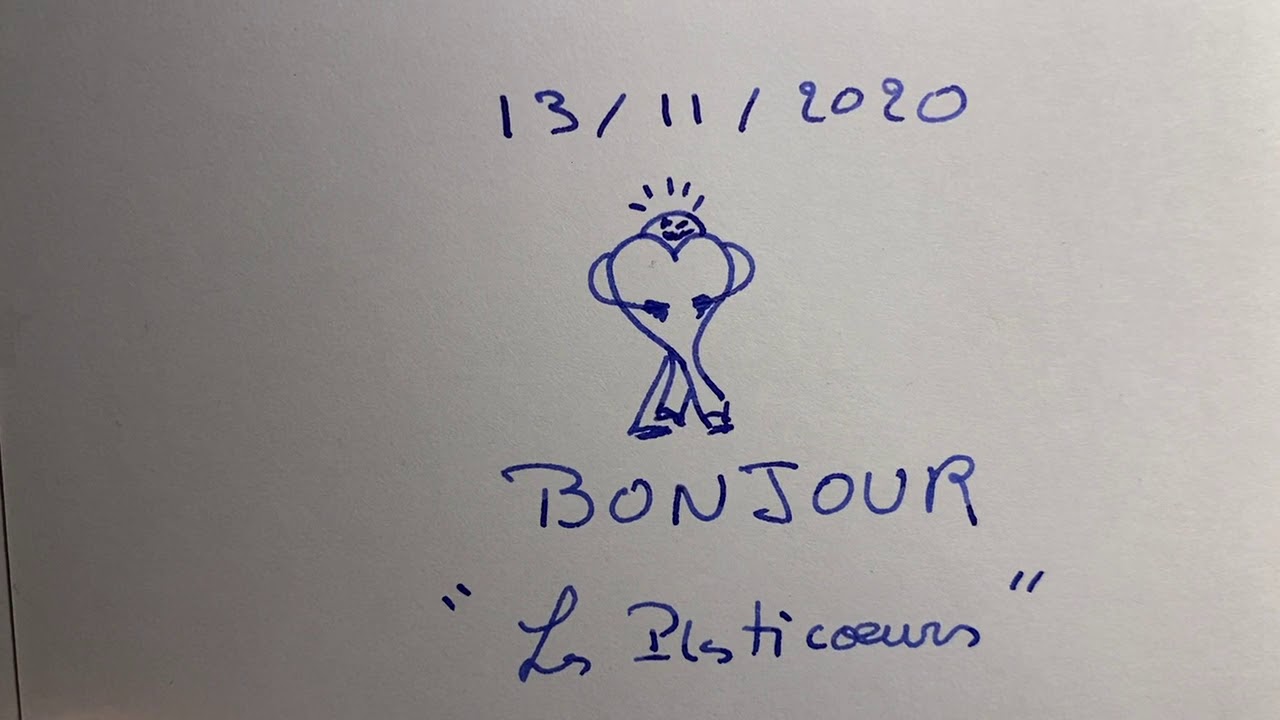 13/11/2020
BONJOUR
"Les Plasticœurs"